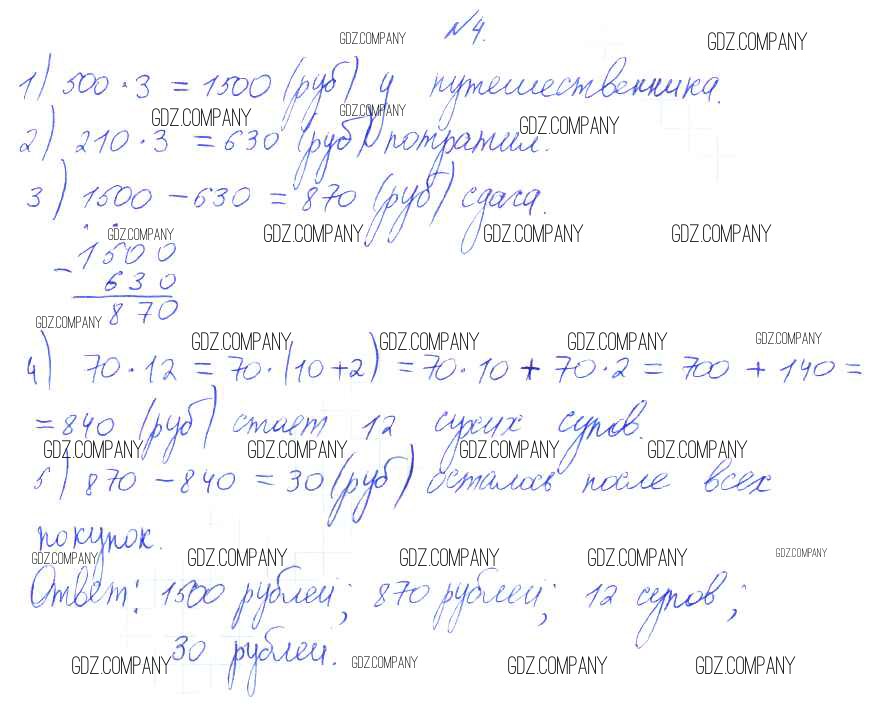 №4.
GDZ.COMPANY GDZ.COMPANY
1) 500 · 3 = 1500 (руб) у путешественника.
GDZ.COMPANY GDZ.COMPANY GDZ.COMPANY
2) 210 · 3 = 630 (руб) потратил.
3) 1500 – 630 = 870 (руб) сдача.
GDZ.COMPANY GDZ.COMPANY GDZ.COMPANY GDZ.COMPANY
– 1500
630
870
GDZ.COMPANY GDZ.COMPANY GDZ.COMPANY GDZ.COMPANY GDZ.COMPANY
4) 70 · 12 = 70 · (10 + 2) = 70 · 10 + 70 · 2 = 700 + 140 =
= 840 (руб) стоят 12 сухих супов.
GDZ.COMPANY GDZ.COMPANY GDZ.COMPANY GDZ.COMPANY
5) 870 – 840 = 30 (руб) осталось после всех
покупок.
GDZ.COMPANY GDZ.COMPANY GDZ.COMPANY GDZ.COMPANY GDZ.COMPANY
Ответ: 1500 рублей; 870 рублей; 12 супов;
30 рублей.
GDZ.COMPANY GDZ.COMPANY GDZ.COMPANY GDZ.COMPANY